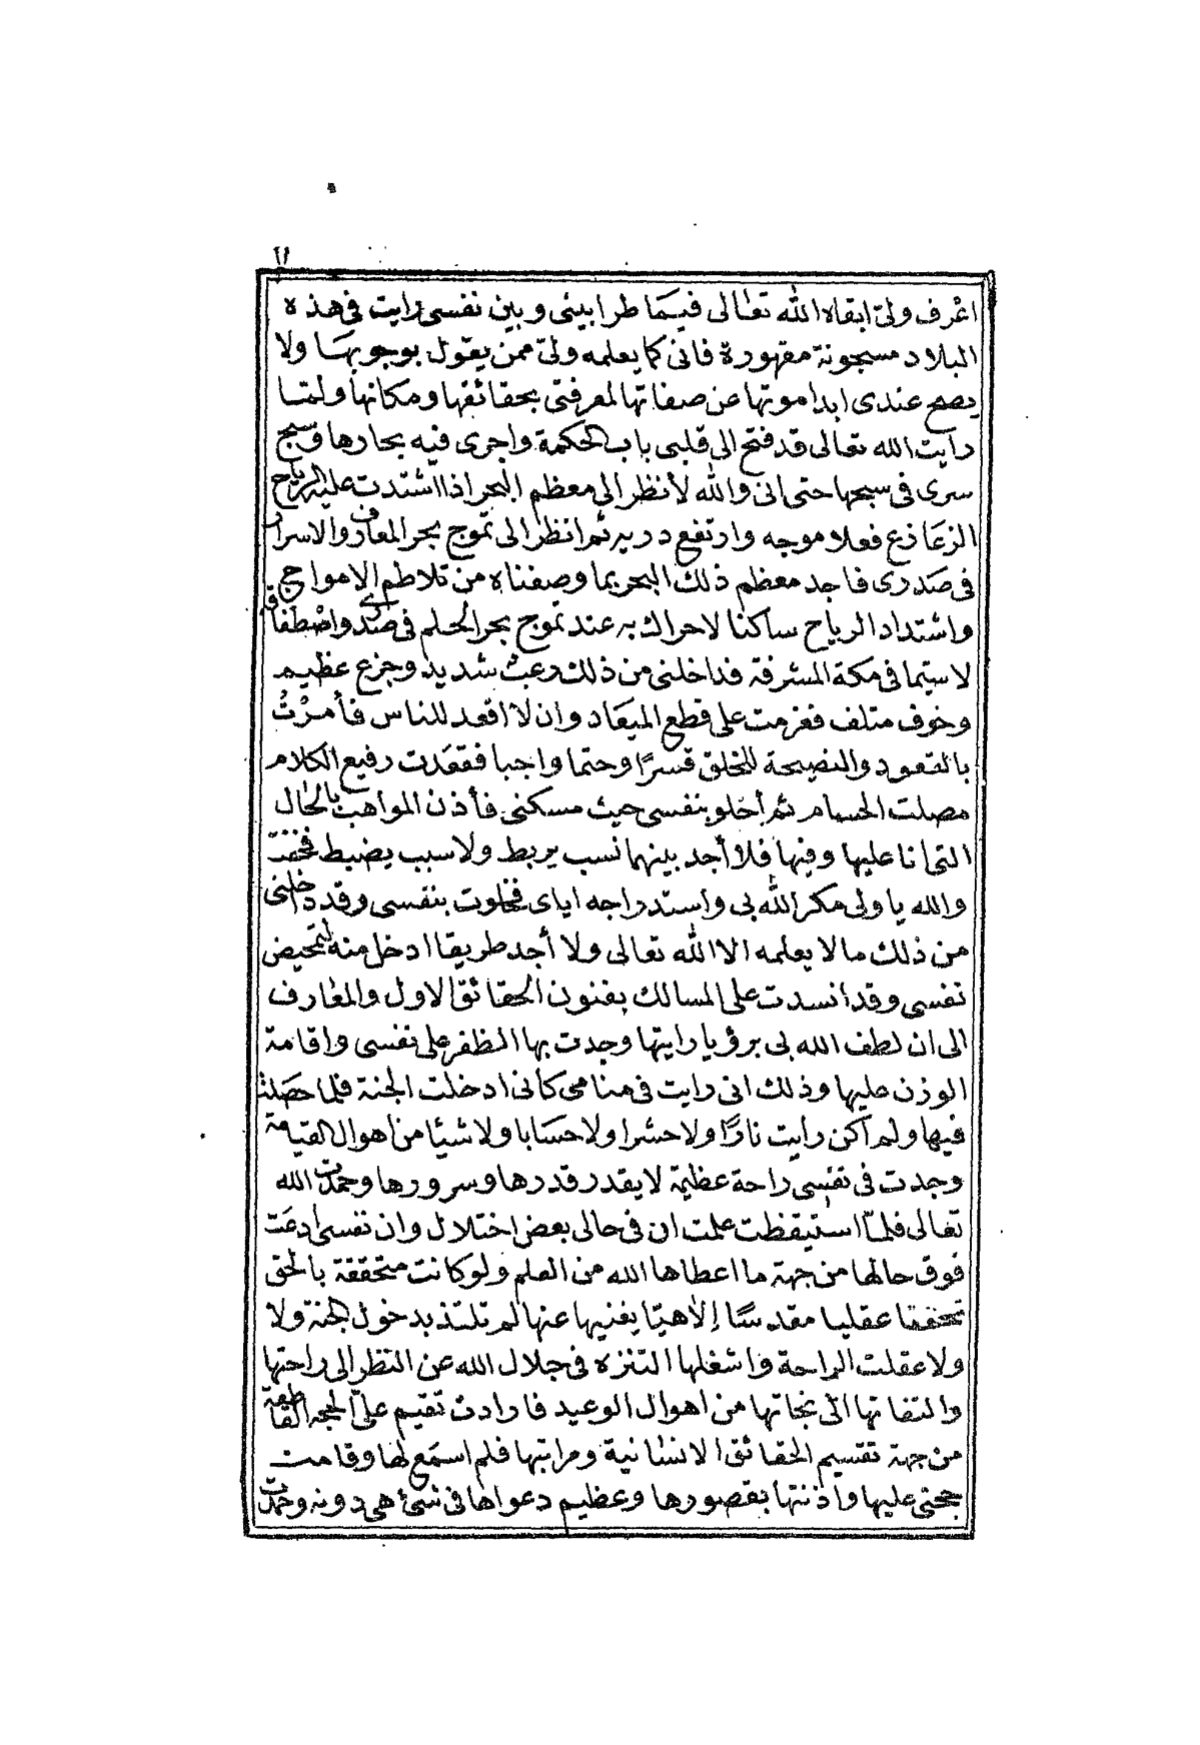 ١١
اعرف ولىّ ابقاه الله تعالى فيما طرا بينى وبين نفسى رايت فى هذه
البلاد مسجونة مقهورة فانى كما يعلمه ولىّ ممن يقول بوجوبها ولا
يصح عندى ابدا موتها عن صفاتها لمعرفتى بحقائقها ومكانها ولمّا
رايت الله تعالى قد فتح الى قلبى باب الحكمة واجرى فيه بحارها وسبح
سرى فى سبحها حتى انى والله لأنظر الى معظم البحر اذا اشتدت عليه الرياح
الزعازع فعلا موجه وارتفع دويه ثم انظر الى تموج بحر المعارف والاسرار
فى صدرى فاجد معظم ذلك البحر بما وصفناه من تلاطم الامواج
واشتداد الرياح ساكنا لا حراك به عند تموج بحر الحلم فى صدرى واصطفاق
لا سيما فى مكة المشرفة فداخلنى من ذلك رعب شديد وجزع عظيم
وخوف متلف فعزمت على قطع الميعاد وان لا اقعد للناس فأمرت
بالقعود والنصيحة للخلق قسرًا وحتما واجبا فقعدت رفيع الكلام
مصلت الحسام ثم أخلو بنفسى حيث مسكنى فأذن المواهب بالحال
التى انا عليها وفيها فلا أجد بينهما نسب يربط ولا سبب يضبط فخفت
والله يا ولى مكر الله بى واستدراجه اياى فخلوت بنفسى وقد داخلنى
من ذلك ما لا يعلمه الا الله تعالى ولا أجد طريقا ادخل منه لتمحيض
نفسى وقد انسدت على المسالك بفنون الحقائق الاول والمعارف
الى ان لطف الله بى برؤيا رايتها وجدت بها الظفر على نفسى واقامة
الوزن عليها وذلك انى رايت فى منامى كانى ادخلت الجنة فلما حصلت
فيها ولم أكن رايت نارًا ولا حشرا ولا حسابا ولا شيئا من اهوال القيامة
وجدت فى نفسى راحة عظيمة لا يقدر قدرها وسرورها وحمدت الله
تعالى فلمّا استيقظت علمت ان فى حالى بعض اختلال وان نفسى ادعت
فوق حالها من جهة ما اعطاها الله من العلم ولو كانت متحققة بالحق
تحققا عقليا مقدسًا إلاهيّا يفنيها عنها لم تلتذ بدخول الجنة ولا
ولا عقلت الراحة واشغلها التنزه فى جلال الله عن النظر الى راحتها
والتفاتها الى نجاتها من اهوال الوعيد فارادت تقيم علىّ الحجة القاطعة
من جهة تقسيم الحقائق الانسانية ومراتبها فلم اسمع لها وقامت
حجتى عليها واذنتها بقصورها وعظيم دعواها فى شئ هى دونه وحمدت